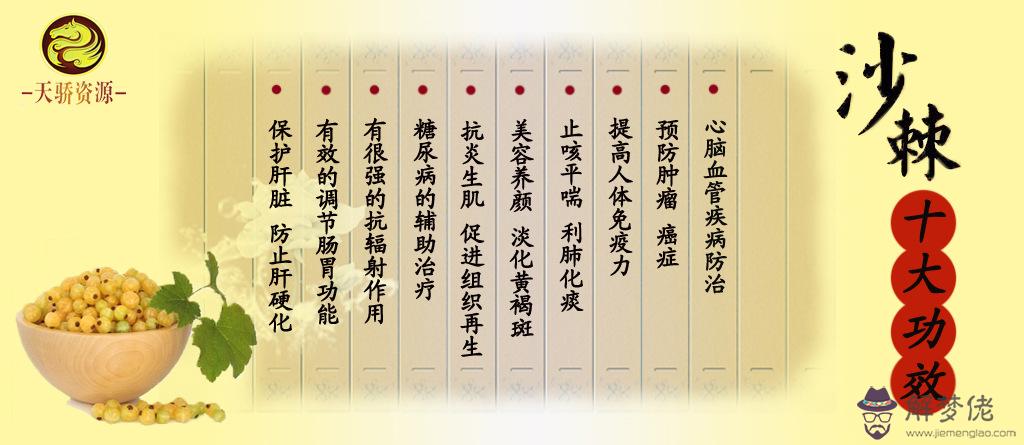 沙棘
十大功效
心脑血管疾病防治
预防肿瘤 癌症
提高人体免疫力
止咳平喘 利肺化痰
美容养颜 淡化黄褐斑
抗炎生肌 促进组织再生
糖尿病的辅助治疗
有很强的抗辐射作用
有效的调节肠胃功能
保护肝脏 防止肝硬化
天骄资源
解梦佬
www.jiemenglao.com